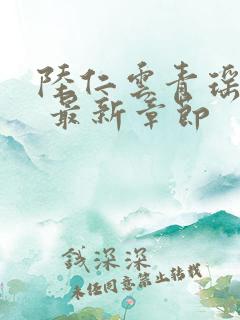 陆仁云青瑶
最新章节
钱深深
未经同意禁止转载